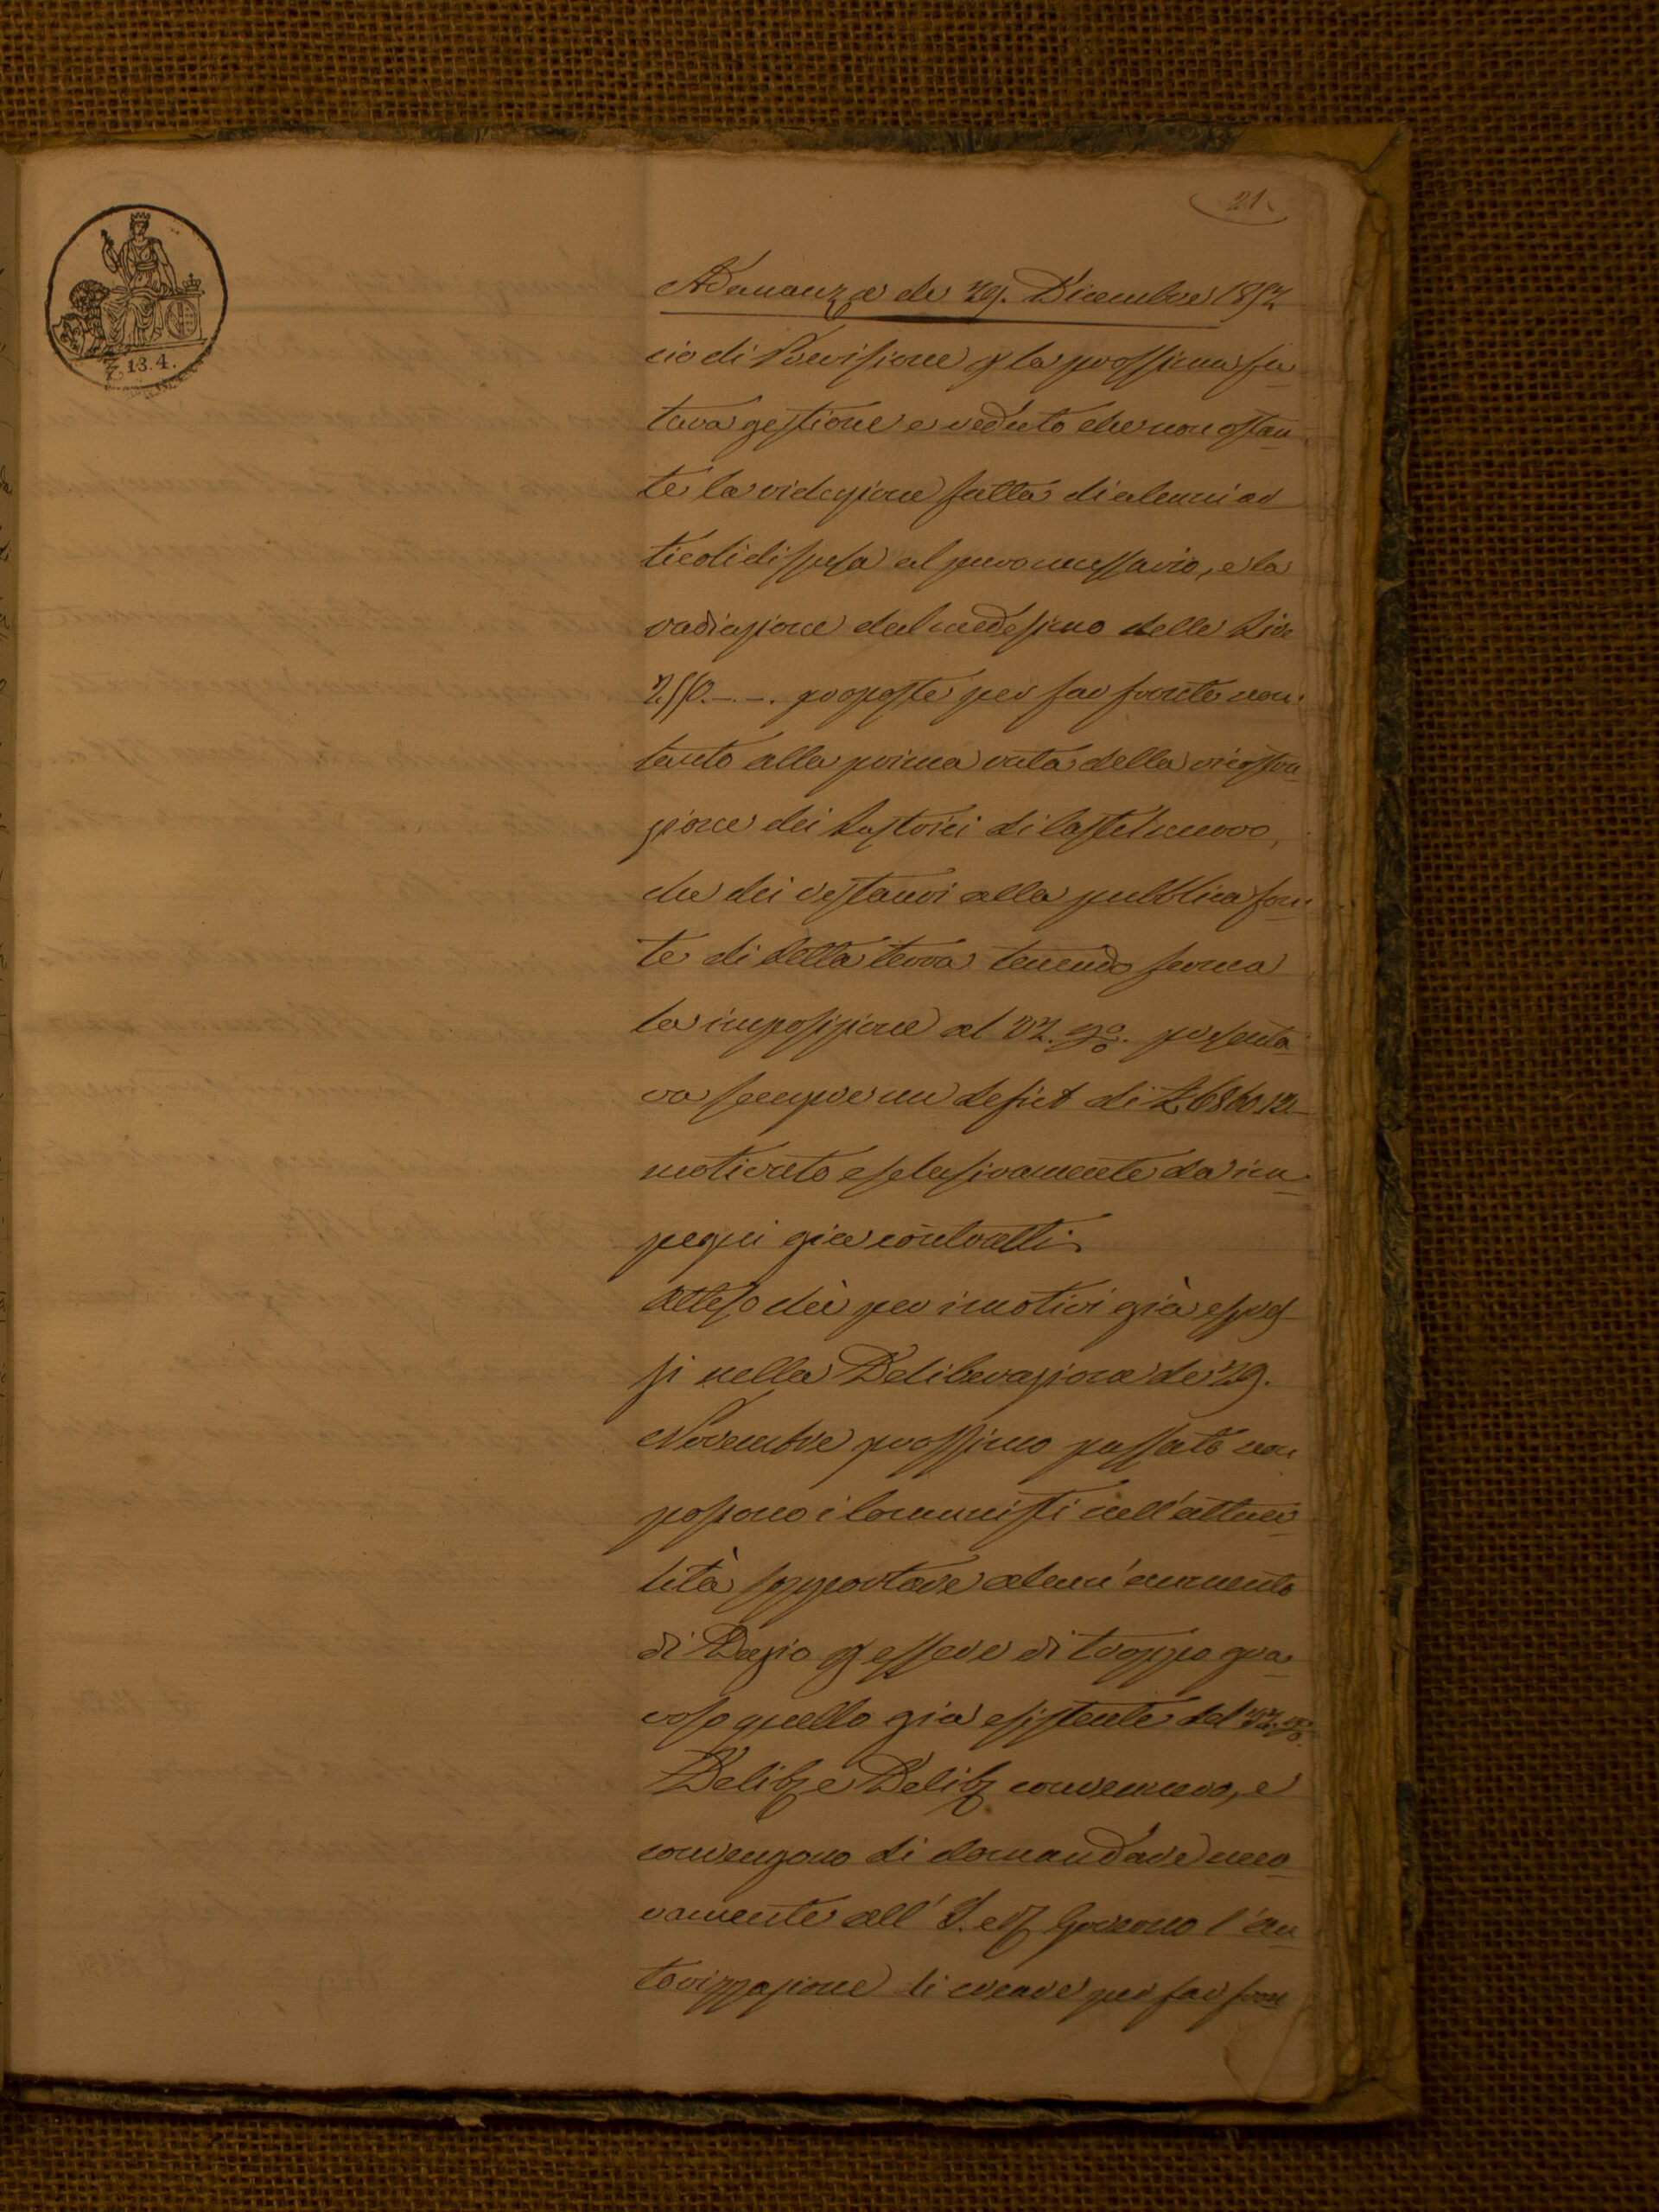 21.
₤ 13.4.
Adunanza de 29. Dicembre 1854
cio di Previsione p la prossima fu
tura gestione e veduto che non ostan
te la riduzione fatta di alcuni ar
ticoli di spesa al puro necessario, e la
radiazione dal medesimo delle Lire
proposte per far fronte non
tanto alla prima rata della
zione dei Lastrici di Castelnuovo,
che dei restauri alla pubblica fon
te di detta terra tenendo ferma
la imposizione al
va sempre un deficit di ₤ 6860.12.
motivato esclusivamente da im
pegni già contratti
Atteso che per i motivi già espres
si nella Deliberazione de 29.
Novembre prossimo passato non
possono i Comunisti nell'attua
lità sopportare alcun'aumento
di Dazio p essere di troppo gra
voso quello già esistente del
Delib. e Delib. convennero, e
convengono di domandare nuo
vamente all' I. e R. Governo l'au
torizzazione di creare per far fron